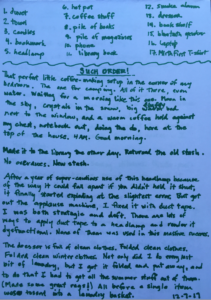 1. donut
2. towel
3. candles
4. bookmark
5. headlamp
6. hot pot
7. coffee stuff
8. pile of books
9. pile of magazines
10. phone
11. library book
13. dresser
14. book shelf
16. laptop
17. Mini First Toolset
SUCH ORDER!
That perfect little coffee-making setup in the corner of my
bedroom. The one for camping. As if there, even
now. Waiting for a morning like this one. Moon in
the sky, crystals in the big
next to the window, and a warm coffee held against
my chest, notebook out, doing the do, here at the
top of the house. Ahh. Good morning.
Made it to the library the other day. Returned the old stash.
No overdues. New stash.
After a year of super-cautious use of this headlamp because
of the way it could fall apart if you didn't hold it shut,
it finally started exploding at the slightest error. But get
out the appliance machine, I fixed it with duct tape.
I was both strategic and deft. There are lots of
ways to apply duct tape to a headlamp and render it
dysfunctional. None of them was used in this austere success.
The dresser is full of clean clothes. Folded clean clothes.
Folded clean winter clothes. Not only did I do every last
bit of laundry, but I got it folded and put away, and
to do that I had to get all the summer stuff out of there
(Made some great rags!) All before a single item
was tossed into a laundry basket.
12-7-17